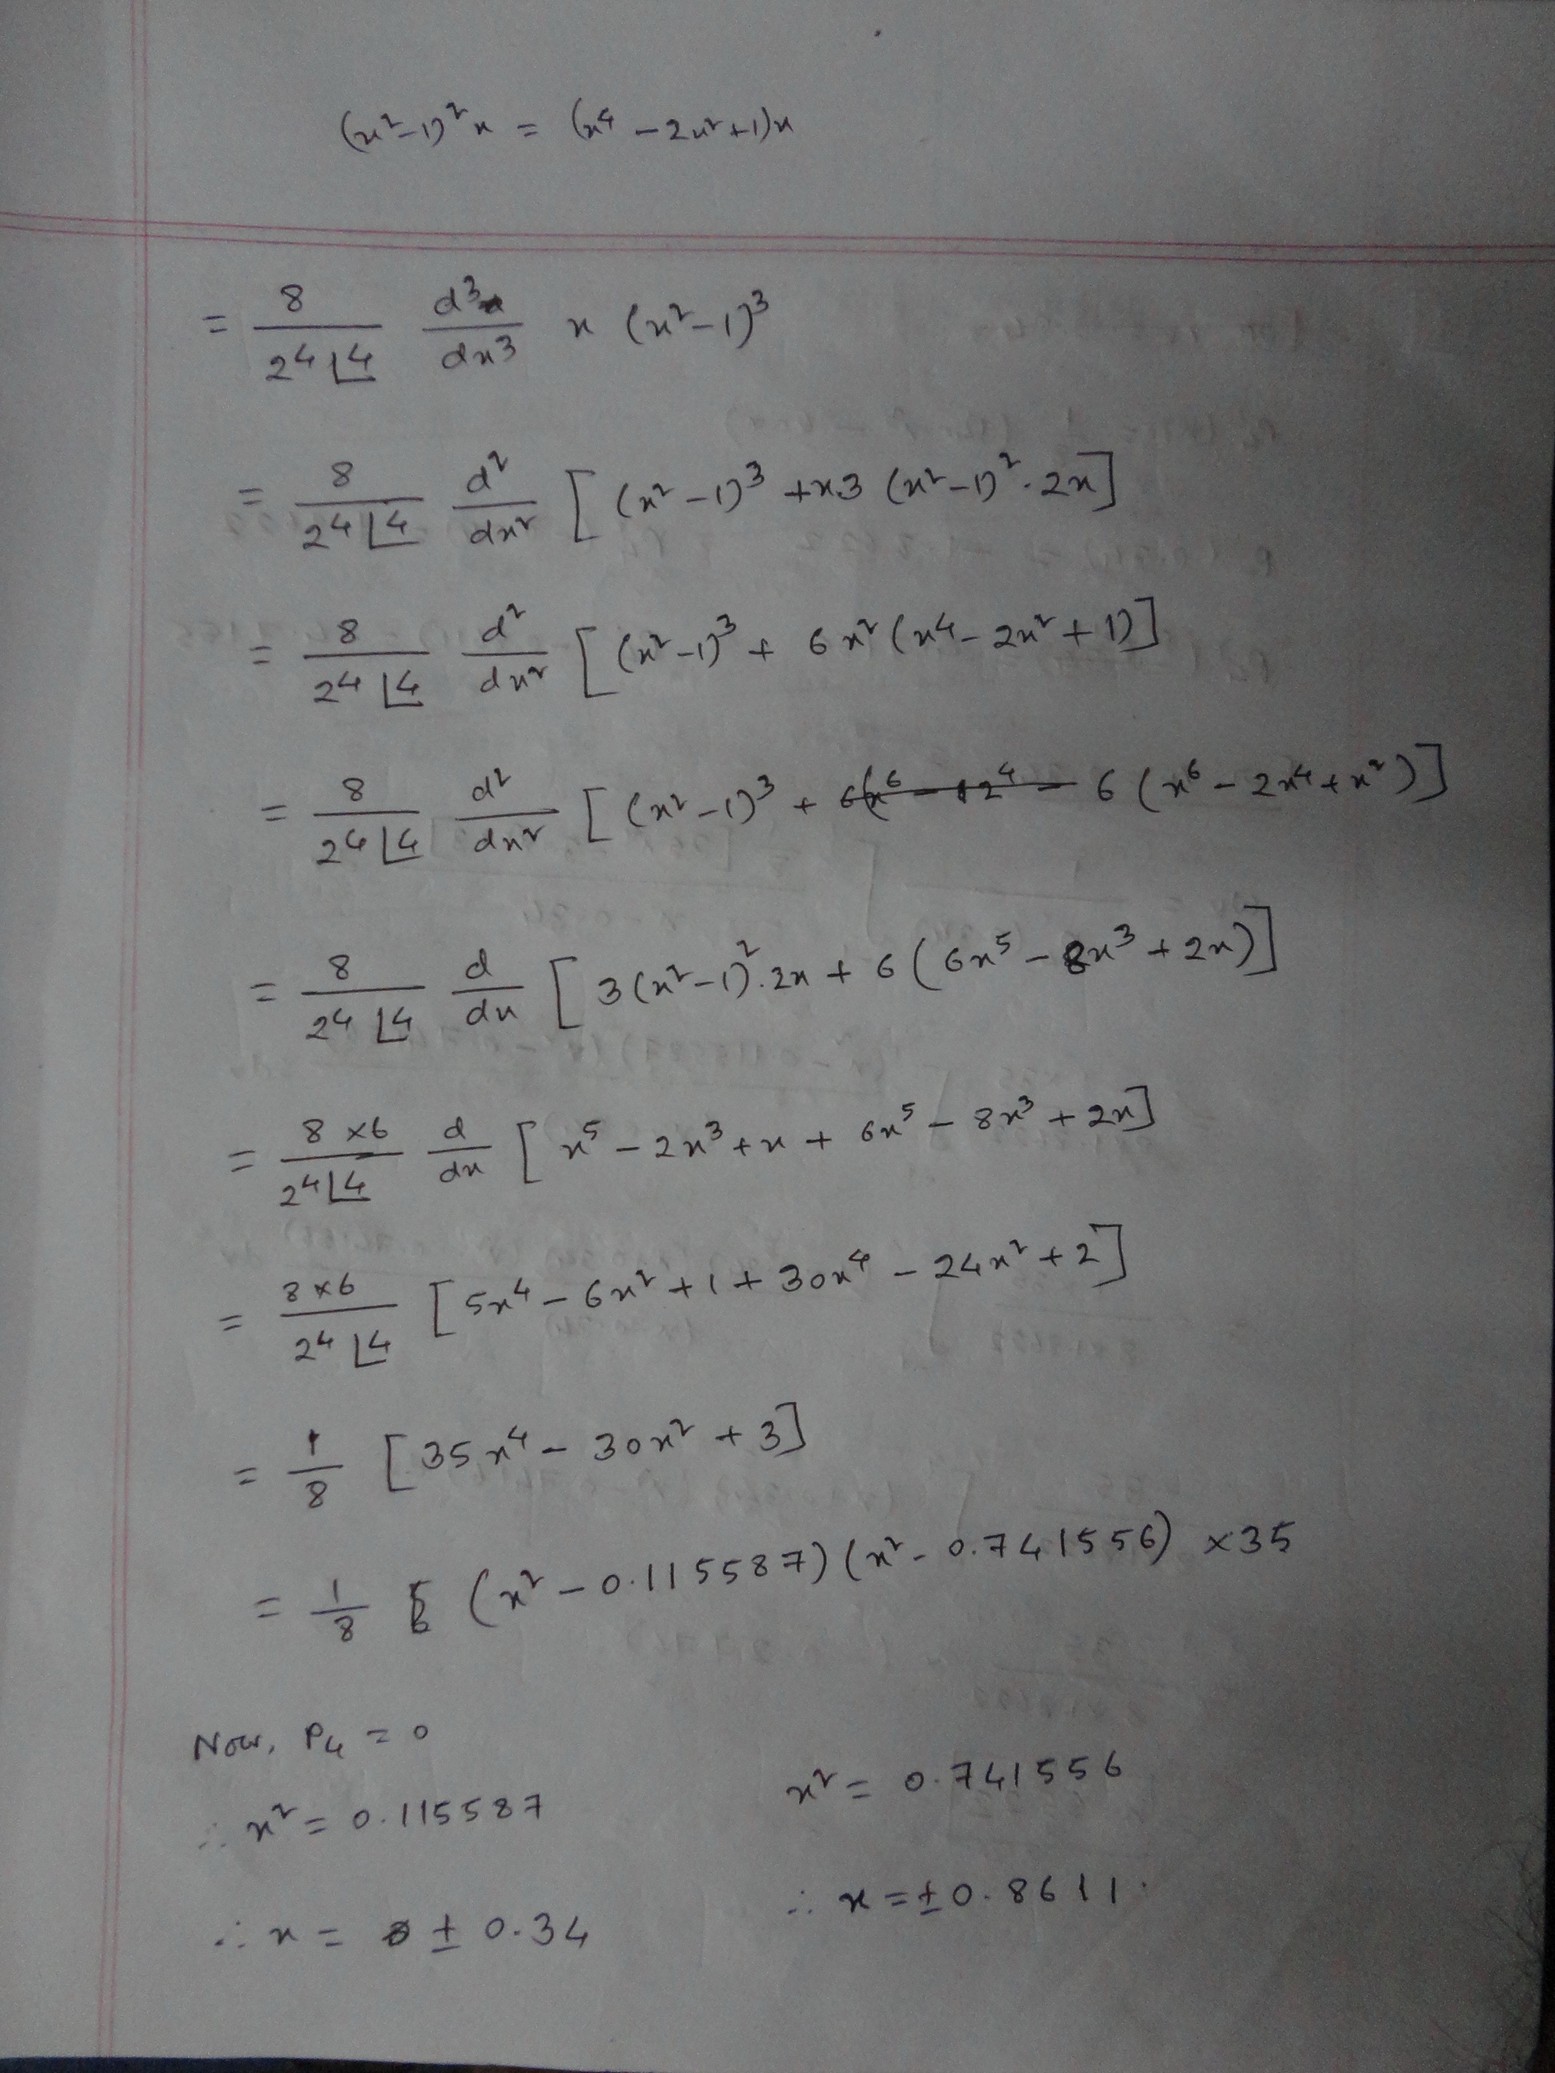 (x²-1)² x = (x⁴ - 2x² + 1)x
= 8/(2⁴ ⌊4) d³/dx³ x (x²-1)³
= 8/(2⁴ ⌊4) d²/dx² [(x²-1)³ + x.3 (x²-1)².2x]
= 8/(2⁴ ⌊4) d²/dx² [(x²-1)³ + 6x² (x⁴ - 2x² + 1)]
= 8/(2⁴ ⌊4) d²/dx² [(x²-1)³ + 6(x⁶ - 2x⁴ + x²)]
= 8/(2⁴ ⌊4) d/dx [3(x²-1)².2x + 6(6x⁵ - 8x³ + 2x)]
= 8×6/(2⁴ ⌊4) d/dx [x⁵ - 2x³ + x + 6x⁵ - 8x³ + 2x]
= 8×6/(2⁴ ⌊4) [5x⁴ - 6x² + 1 + 30x⁴ - 24x² + 2]
= 1/8 [35x⁴ - 30x² + 3]
= 1/8 (x² - 0.115587)(x² - 0.741556) ×35
Now, P₄ = 0
∴ x² = 0.115587
x² = 0.741556
∴ x = ± 0.34
∴ x = ± 0.8611